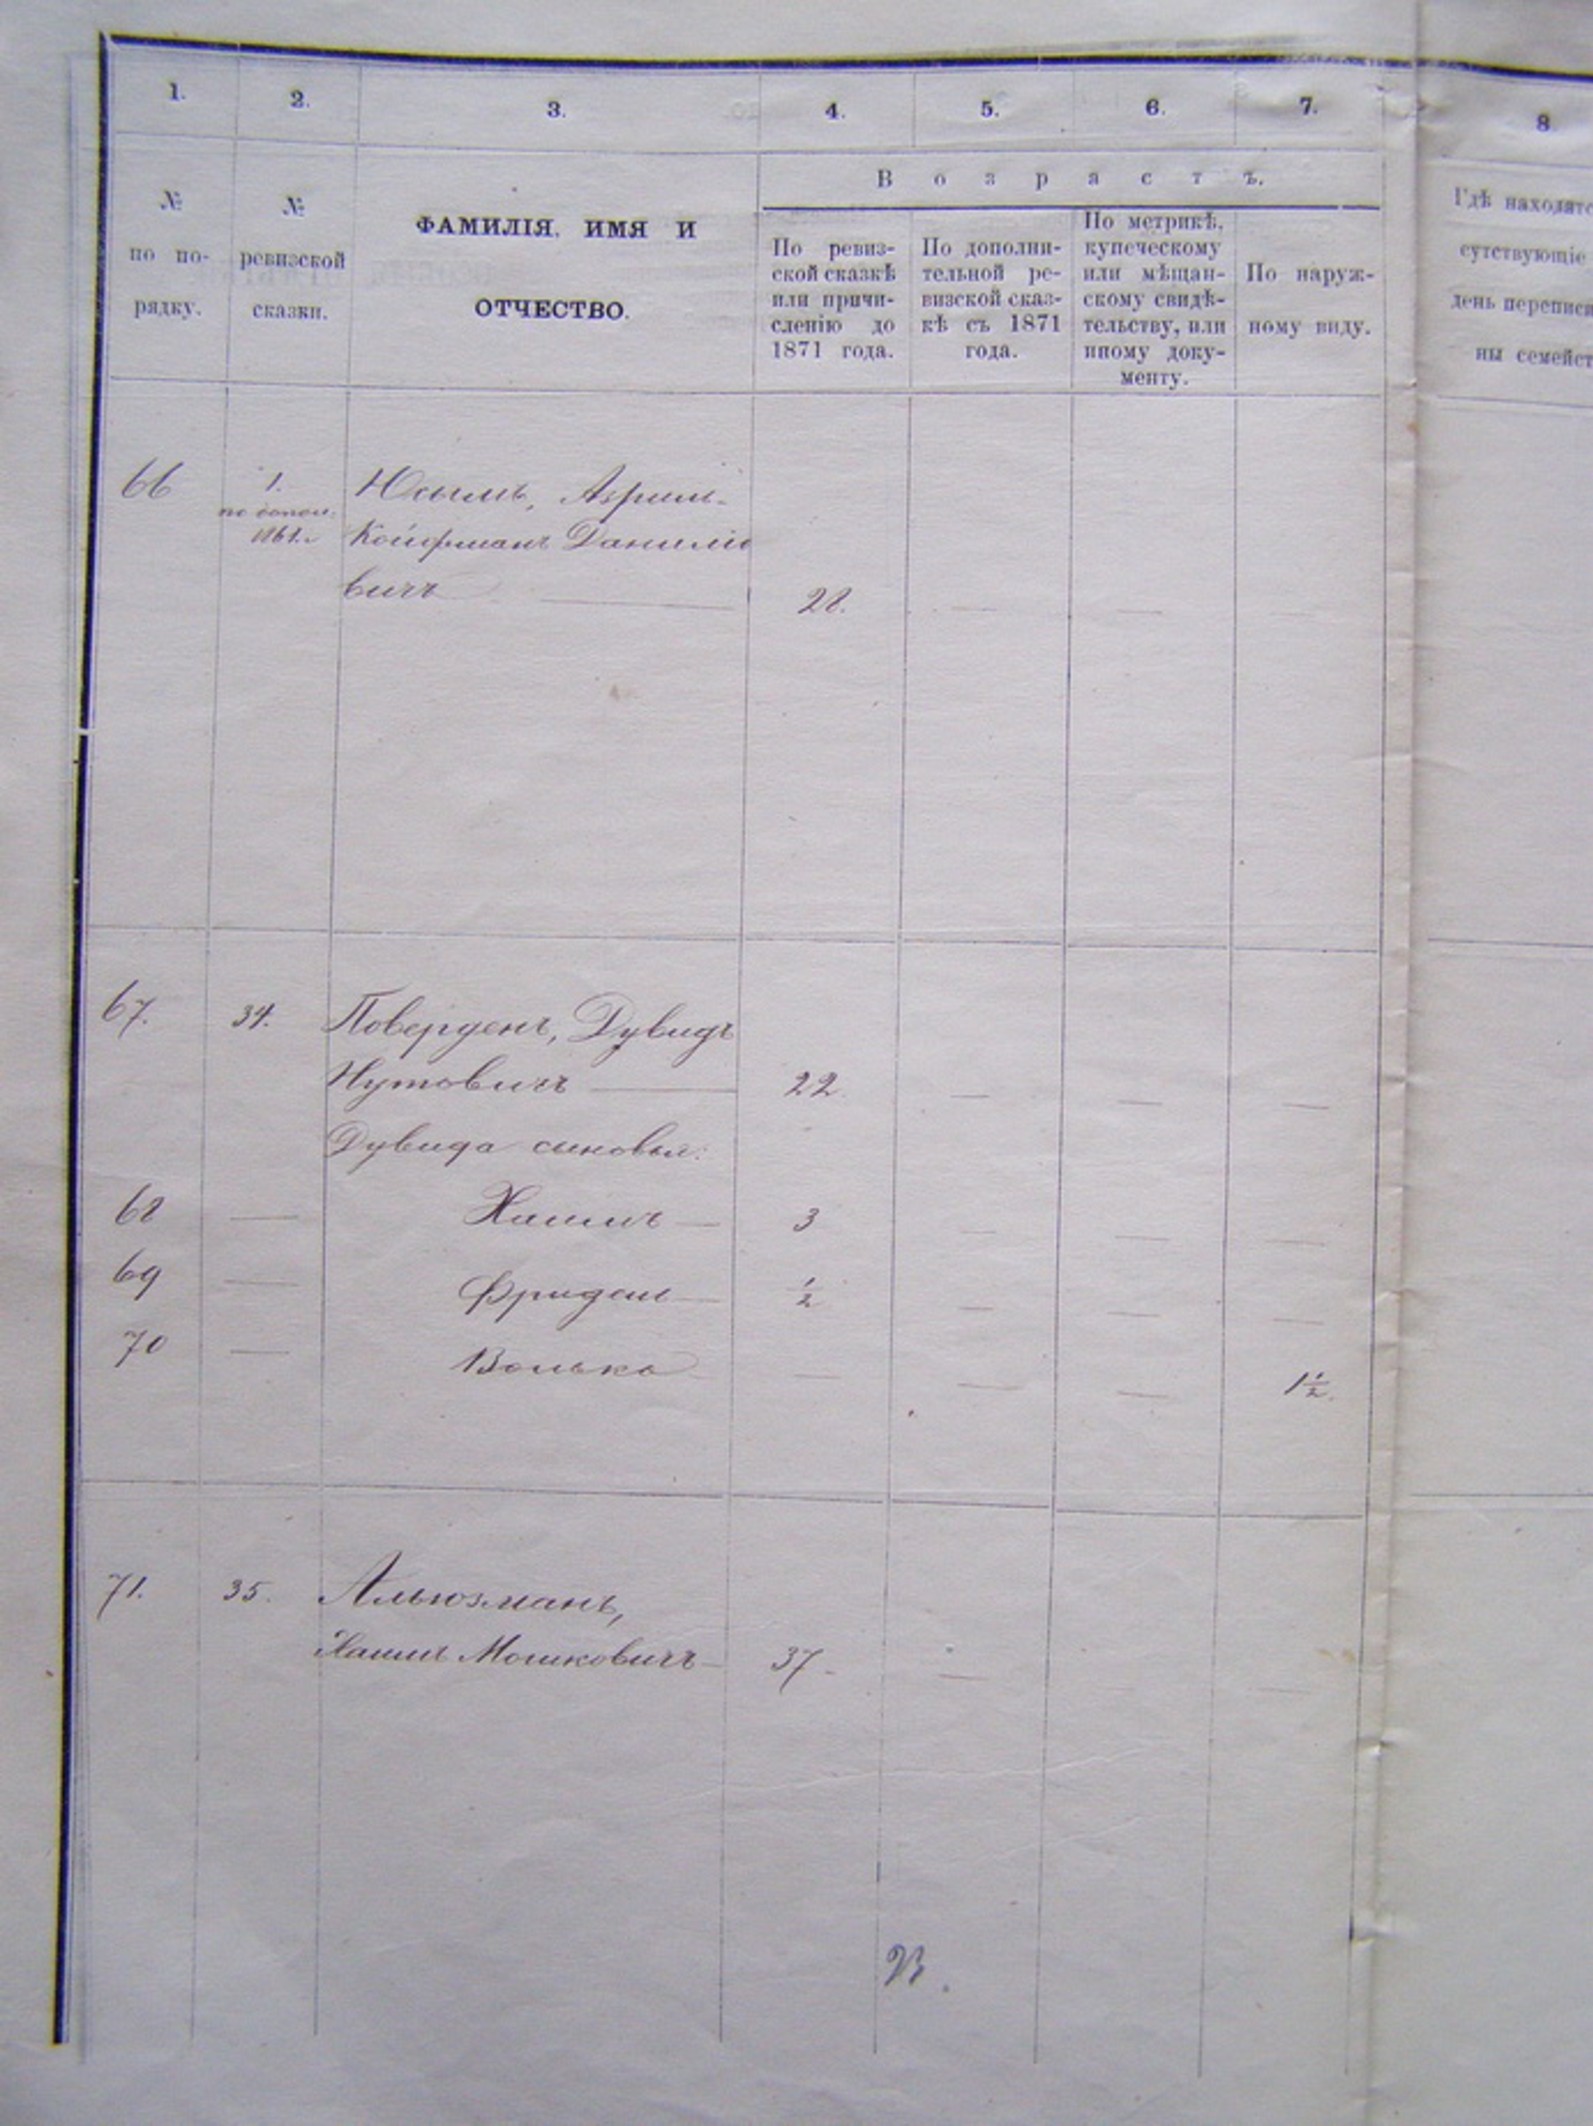 1. 2. 3. 4. 5. 6. 7. 8
Возрастъ.
№ по порядку.
№ ревизской сказки.
ФАМИЛІЯ, ИМЯ И
ОТЧЕСТВО.
По ревиз-
ской сказкѣ
или причи-
сленію до
1871 года.
По дополни-
тельной ре-
визской сказ-
кѣ съ 1871
года.
По метрикѣ,
купеческому
или мѣщан-
скому свидѣ-
тельству, или
иному доку-
менту.
По наруж-
ному виду.
Гдѣ находятс
сутствующіе
день переписи
ны семейст
66 1. Юсымъ, Азриль-
по допол: 1861 Койфманъ Данило
вичъ — 28. — —
67. 34. Поверденъ, Дувидъ
Нутовичъ — 22. — — —
Дувида сыновья:
68 — Хаимъ — 3 — — —
69 — Фридель — ½ — — —
70 — Волько — — — 1½.
71. 35. Альюзманъ,
Хаимъ Мошковичъ — 37 — —